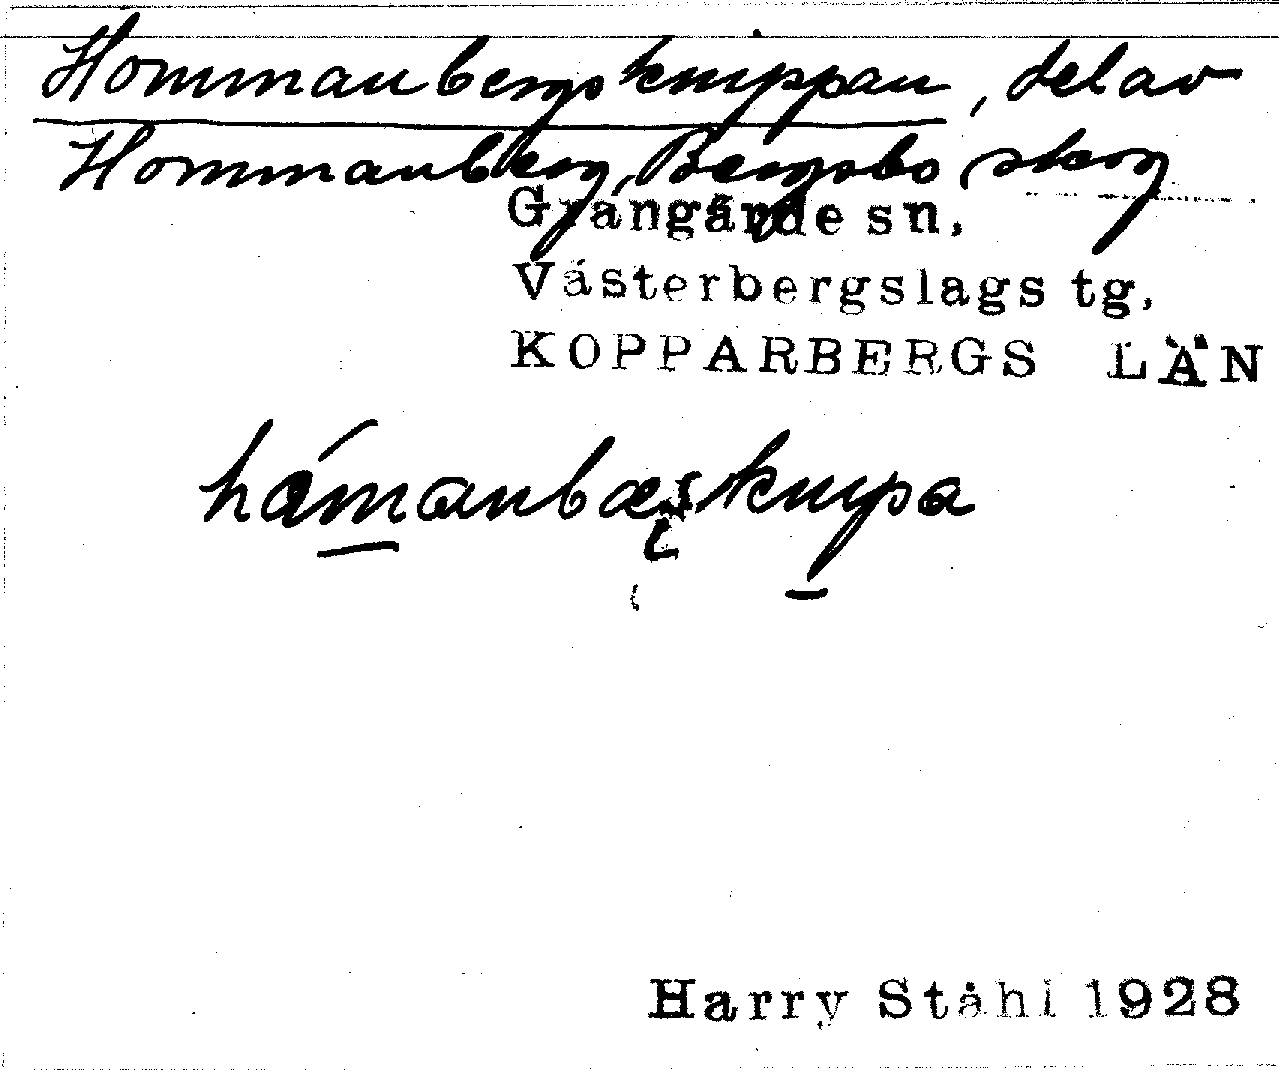 Hommanbergsknippan, del av
Hommanberg, Bergsbo skog
Grangärde sn,
Västerbergslags tg,
KOPPARBERGS LÄN
Harry Ståhl 1928